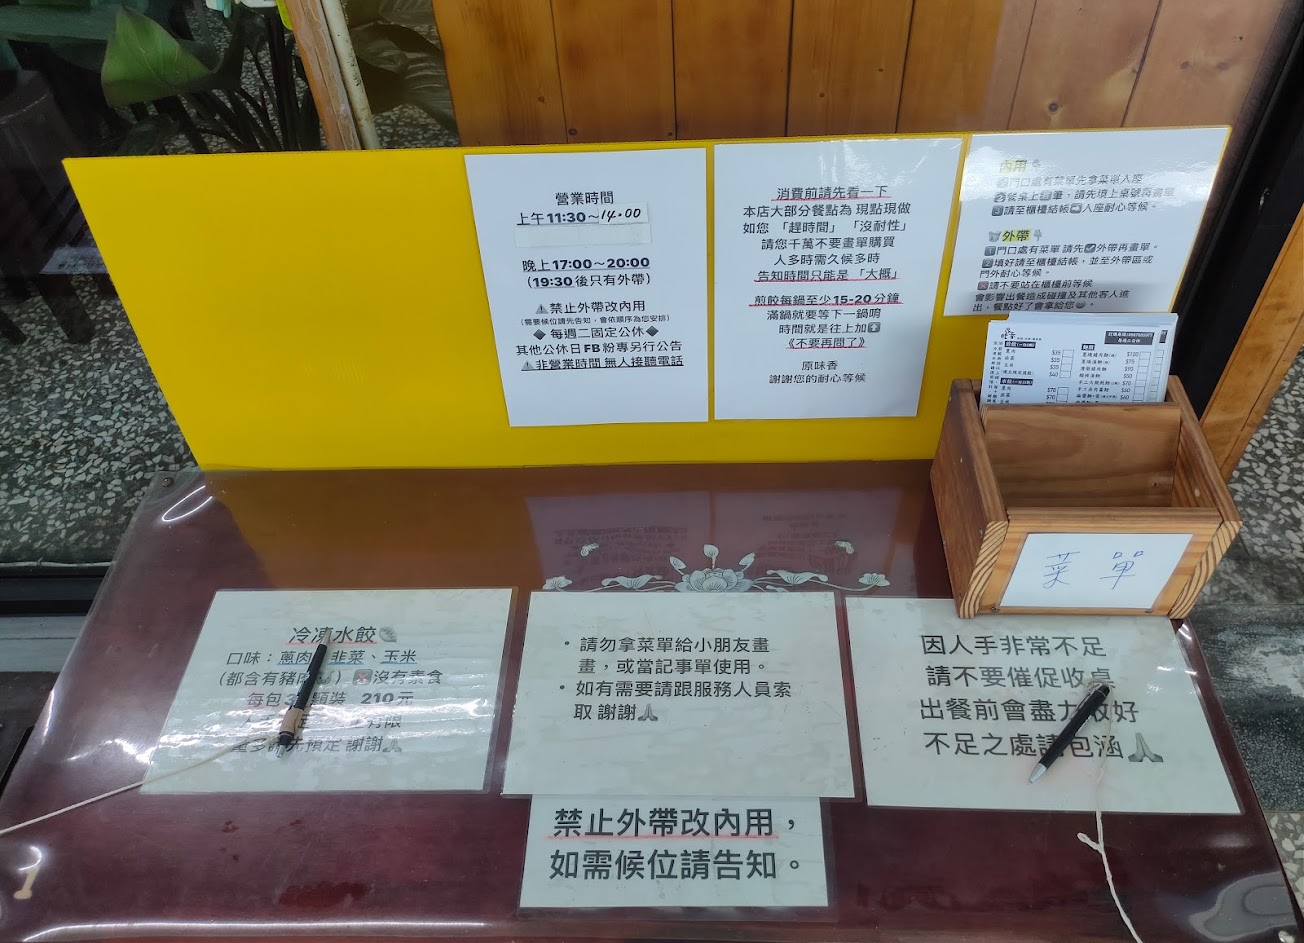 營業時間
上午11:30~14:00
晚上17:00~20:00
(19:30後只有外帶)
⚠禁止外帶改內用
(需要候位請先告知,會依順序為您安排)
◆每週二固定公休◆
其他公休日FB粉專另行公告
⚠非營業時間 無人接聽電話
消費前請先看一下
本店大部分餐點為 現點現做
如您 「趕時間」 「沒耐性」
請您千萬不要畫單購買
人多時需久候多時
告知時間只能是 「大概」
煎餃每鍋至少15-20分鐘
滿鍋就要等下一鍋唷
時間就是往上加⬆
《不要再問了》
原味香
謝謝您的耐心等候
內用
門口處有菜單先拿菜單入座
餐桌上筆,請先填上桌號再畫單
3請至櫃檯結帳➡入座耐心等候。
外帶
1門口處有菜單 請先✅外帶再畫單。
2填好請至櫃檯結帳,並至外帶區或
門外耐心等候。
❌請不要站在櫃檯前等候
會影響出餐造成碰撞及其他客人進
出,餐點好了會拿給您
菜單
冷凍水餃
口味:蔥肉、韭菜、玉米
(都含有豬肉) ❌沒有素食
每包3 顆裝 210元
有限
先預定 謝謝🙏
• 請勿拿菜單給小朋友畫
畫,或當記事單使用。
• 如有需要請跟服務人員索
取 謝謝🙏
因人手非常不足
請不要催促收桌
出餐前會盡力收好
不足之處請包涵🙏
禁止外帶改內用,
如需候位請告知。